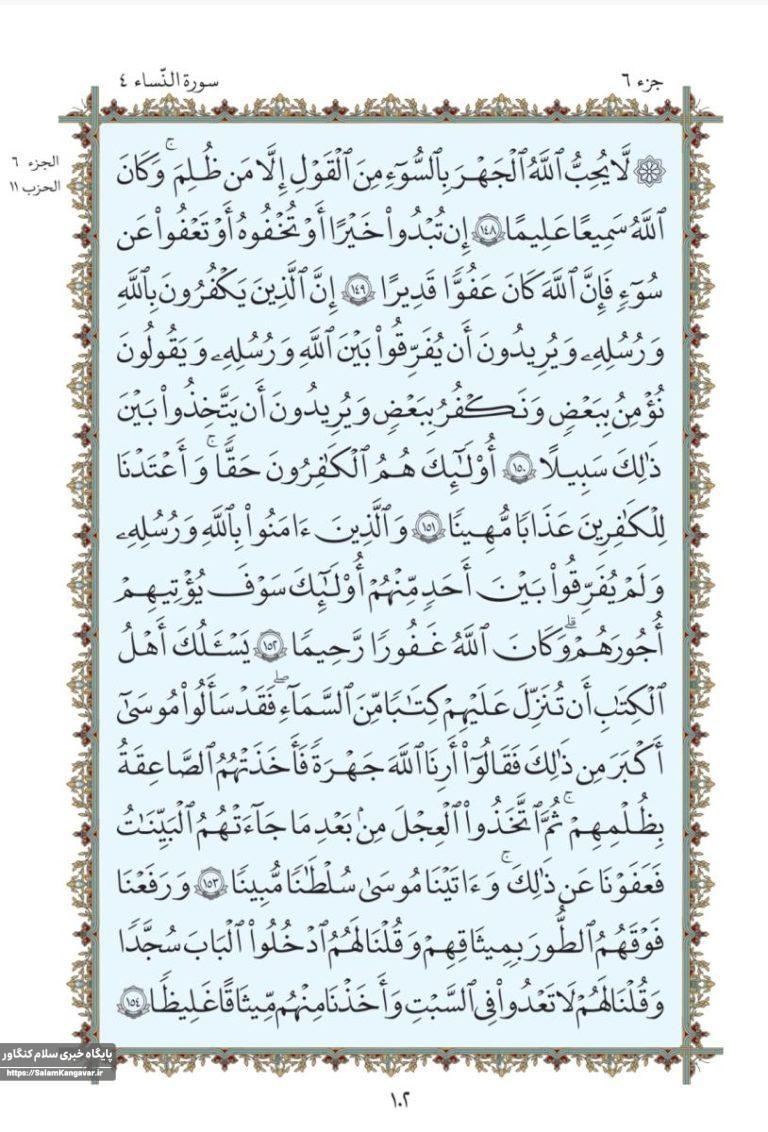 جزء ٦
سورة النّساء ٤
الجزء ٦
الحزب ١١
لَّا يُحِبُّ ٱللَّهُ ٱلْجَهْرَ بِٱلسُّوٓءِ مِنَ ٱلْقَوْلِ إِلَّا مَن ظُلِمَ ۚ وَكَانَ
ٱللَّهُ سَمِيعًا عَلِيمًا ١٤٨ إِن تُبْدُوا۟ خَيْرًا أَوْ تُخْفُوهُ أَوْ تَعْفُوا۟ عَن
سُوٓءٍ فَإِنَّ ٱللَّهَ كَانَ عَفُوًّا قَدِيرًا ١٤٩ إِنَّ ٱلَّذِينَ يَكْفُرُونَ بِٱللَّهِ
وَرُسُلِهِۦ وَيُرِيدُونَ أَن يُفَرِّقُوا۟ بَيْنَ ٱللَّهِ وَرُسُلِهِۦ وَيَقُولُونَ
نُؤْمِنُ بِبَعْضٍ وَنَكْفُرُ بِبَعْضٍ وَيُرِيدُونَ أَن يَتَّخِذُوا۟ بَيْنَ
ذَٰلِكَ سَبِيلًا ١٥٠ أُو۟لَـٰٓئِكَ هُمُ ٱلْكَـٰفِرُونَ حَقًّا ۚ وَأَعْتَدْنَا
لِلْكَـٰفِرِينَ عَذَابًا مُّهِينًا ١٥١ وَٱلَّذِينَ ءَامَنُوا۟ بِٱللَّهِ وَرُسُلِهِۦ
وَلَمْ يُفَرِّقُوا۟ بَيْنَ أَحَدٍ مِّنْهُمْ أُو۟لَـٰٓئِكَ سَوْفَ يُؤْتِيهِمْ
أُجُورَهُمْ ۗ وَكَانَ ٱللَّهُ غَفُورًا رَّحِيمًا ١٥٢ يَسْـَٔلُكَ أَهْلُ
ٱلْكِتَـٰبِ أَن تُنَزِّلَ عَلَيْهِمْ كِتَـٰبًا مِّنَ ٱلسَّمَآءِ ۚ فَقَدْ سَأَلُوا۟ مُوسَىٰٓ
أَكْبَرَ مِن ذَٰلِكَ فَقَالُوٓا۟ أَرِنَا ٱللَّهَ جَهْرَةً فَأَخَذَتْهُمُ ٱلصَّـٰعِقَةُ
بِظُلْمِهِمْ ۚ ثُمَّ ٱتَّخَذُوا۟ ٱلْعِجْلَ مِنۢ بَعْدِ مَا جَآءَتْهُمُ ٱلْبَيِّنَـٰتُ
فَعَفَوْنَا عَن ذَٰلِكَ ۚ وَءَاتَيْنَا مُوسَىٰ سُلْطَـٰنًا مُّبِينًا ١٥٣ وَرَفَعْنَا
فَوْقَهُمُ ٱلطُّورَ بِمِيثَـٰقِهِمْ وَقُلْنَا لَهُمُ ٱدْخُلُوا۟ ٱلْبَابَ سُجَّدًا
وَقُلْنَا لَهُمْ لَا تَعْدُوا۟ فِى ٱلسَّبْتِ وَأَخَذْنَا مِنْهُم مِّيثَـٰقًا غَلِيظًا ١٥٤
پایگاه خبری سلام کنگاور
https://SalamKangavar.ir
١٠٢